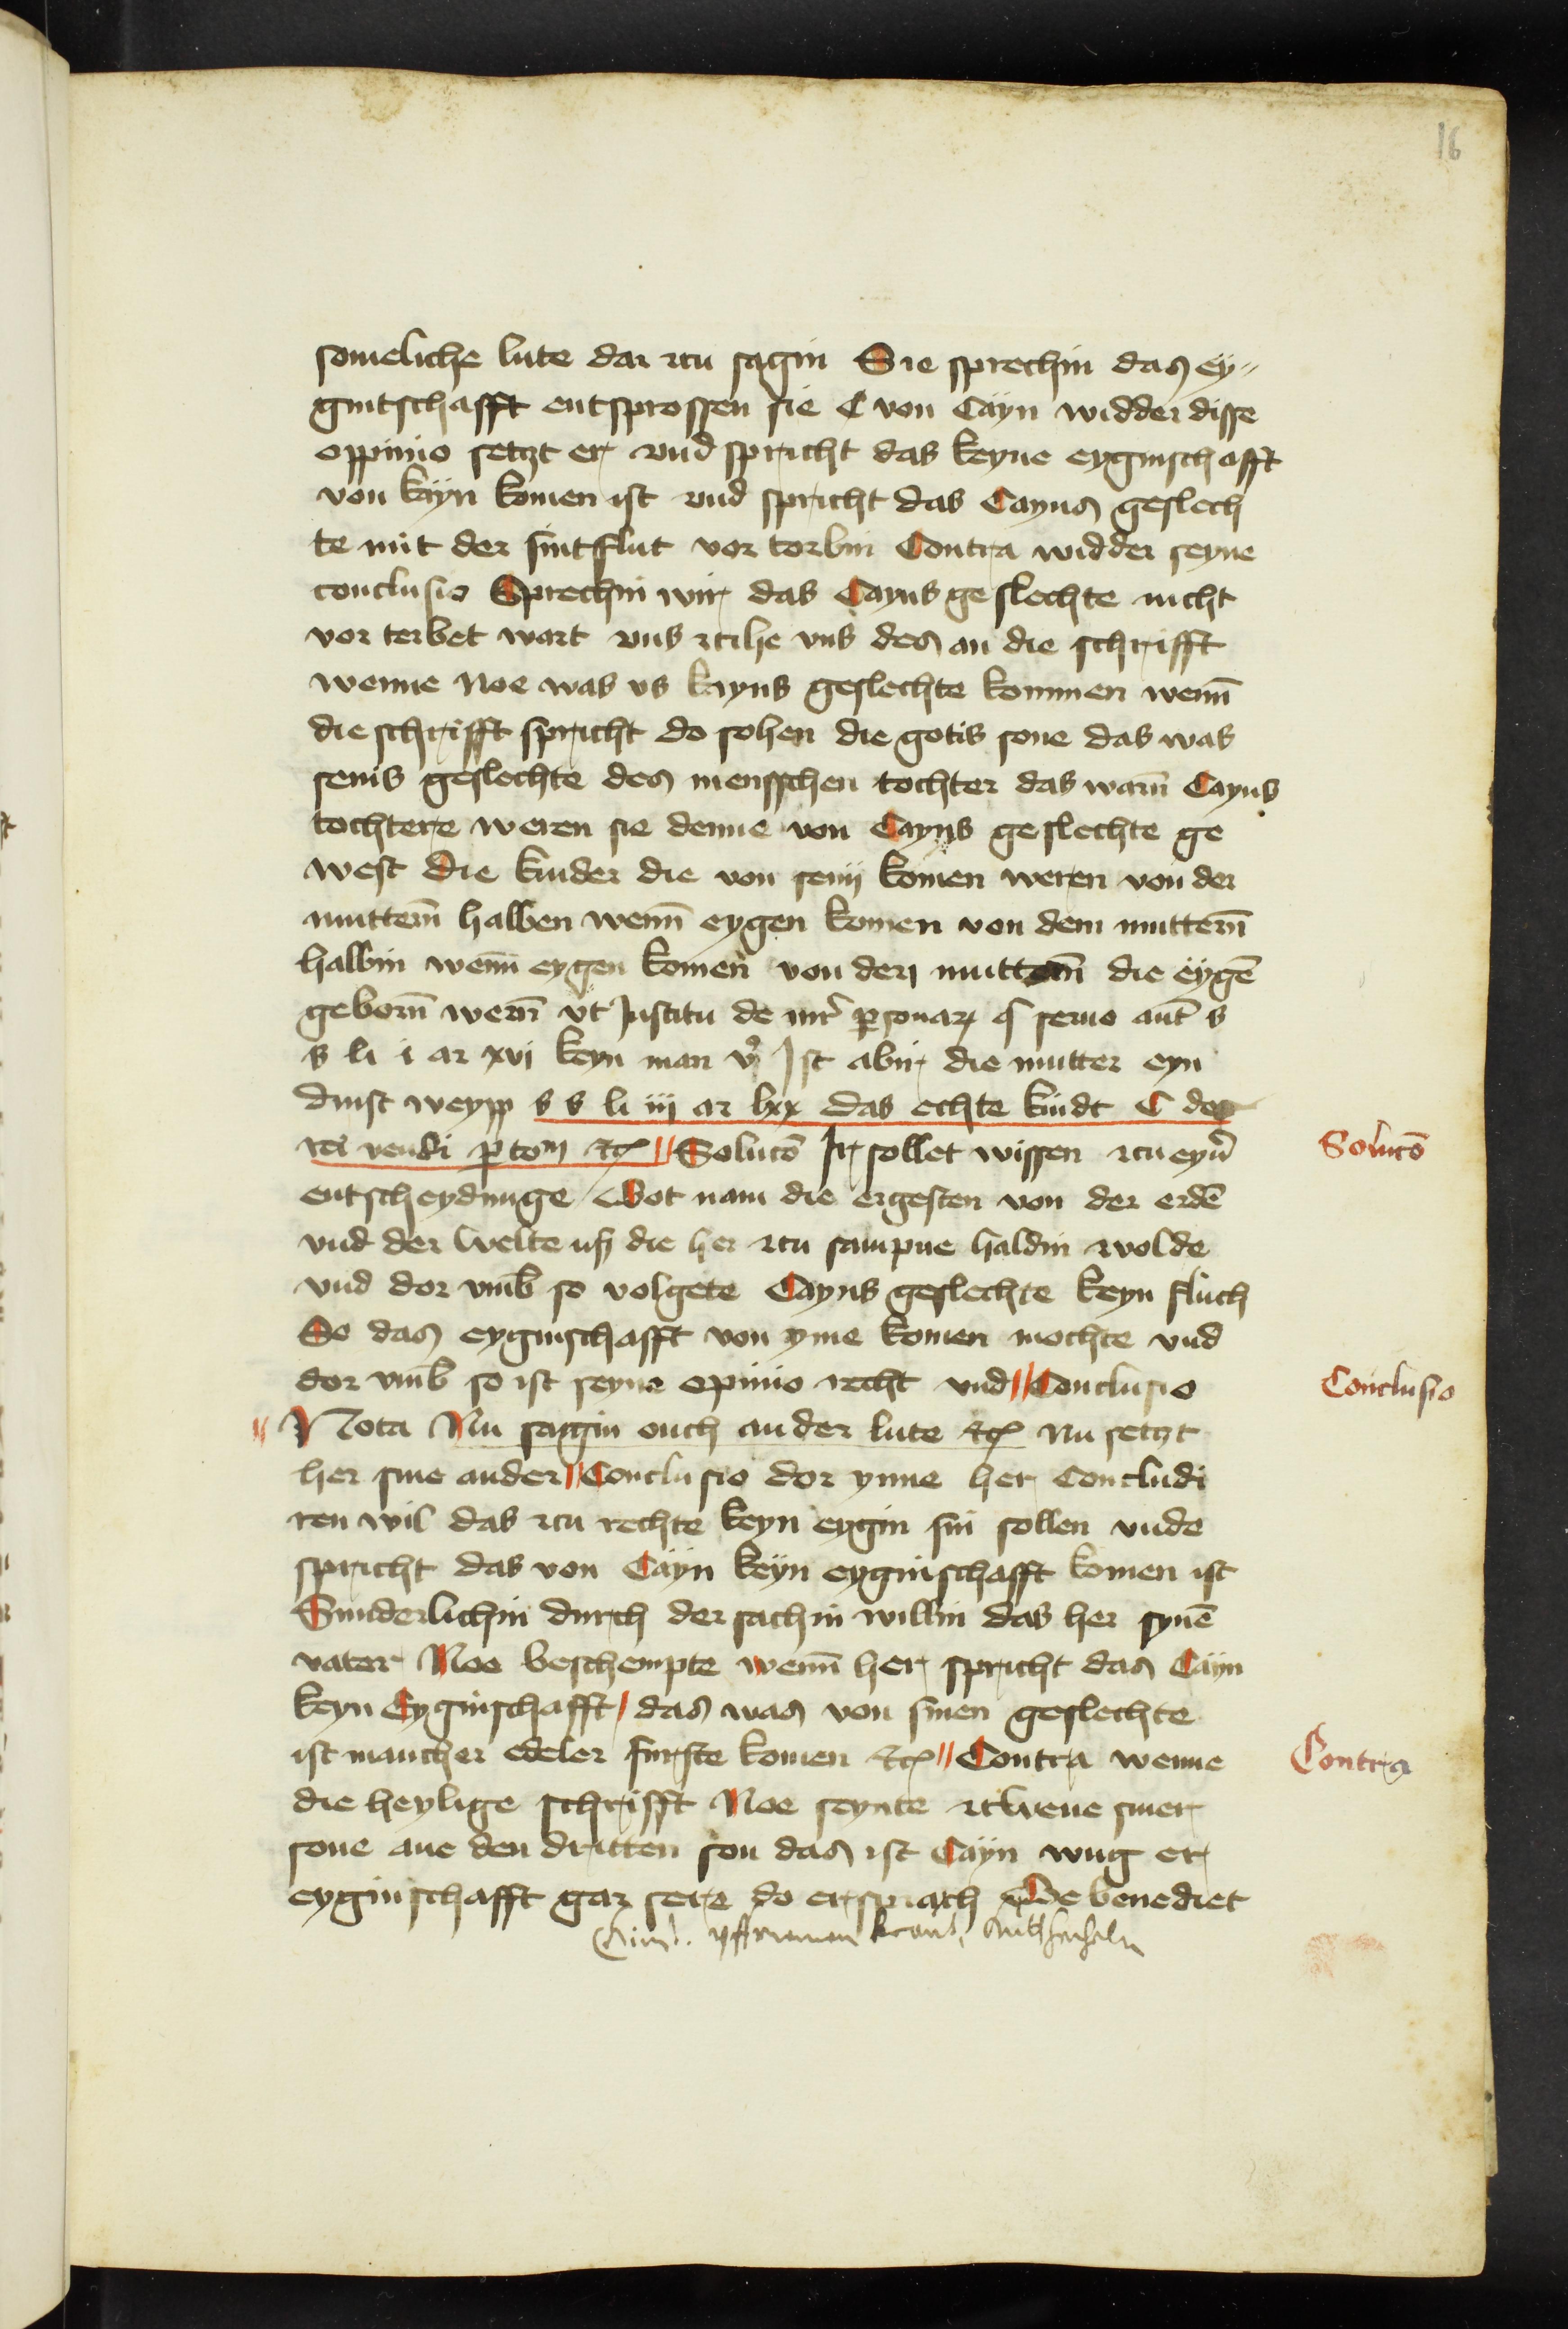 16
someliche lute dar czu sagin Sie sprechin das ey-
gintschafft entsprossen sie C von Cayn widder disse
oppinio setzt er vnd spricht das keyne eyginschafft
von kayn komen ist vnd spricht das Cayns geslech
te mit der sintfflut vor torbin Contra widder seyne
conclusio Sprechin wir das Cayns geslechte nicht
vor terbet wart vns czihe vns des an die schrifft
wenne Noe was vs kayns geslechte kommen wenn̄
die schrifft spricht do sohen die gotis sone das was
semis geslechte des mensschen tochter das warn̄ Cayns
tochtere weren sie denne von Cayns geslechte ge
west die kinder die von semy komen weren von der
muttern̄ halben wenn̄ eygen komen von dem muttern̄
halbin wenn̄ eygen komen von der muttern̄ die eygē
geborn̄ wern̄ vt Institu de personar servo aut s
s li i ar xvi keyn man Ist abir die mutter eyn
dinst weypp s s li iij ar lxx das echte kindt C de
rei vendi etc Solucō Ir sollet wissen czu eyn̄
entscheydunge Got nam die ergesten von der erdē
vnd der welte uff die her czu sampne haldin wolde
vnd dor vmb so volgete Cayns geslechte keyn fluch
So das eyginschafft von yme komen mochte vnd
dor vmb so ist seyne opinio recht vnd Conclusio
Nota Nu sagin ouch ander lute etc Nu setzt
her sine ander Conclusio dor ynne her Concludi
ren wil das czu rechte keyn eygin sin sollen vnde
spricht das von Cayn keyn eyginschafft komen ist
Sunderlichin durch der sachin willin das her synē
vater Noe beschempte wenn̄ her spricht das Cayn
keyn Eyginschafft das was von sinen geslechte
ist mancher edeler furste komen etc Contra wenne
die heylige schrifft Noe seynte czwene siner
sone ane den dritten son das ist Cayn wug er
eyginschafft gar sere do er sprach benediet
Solucō
Conclusio
Contra